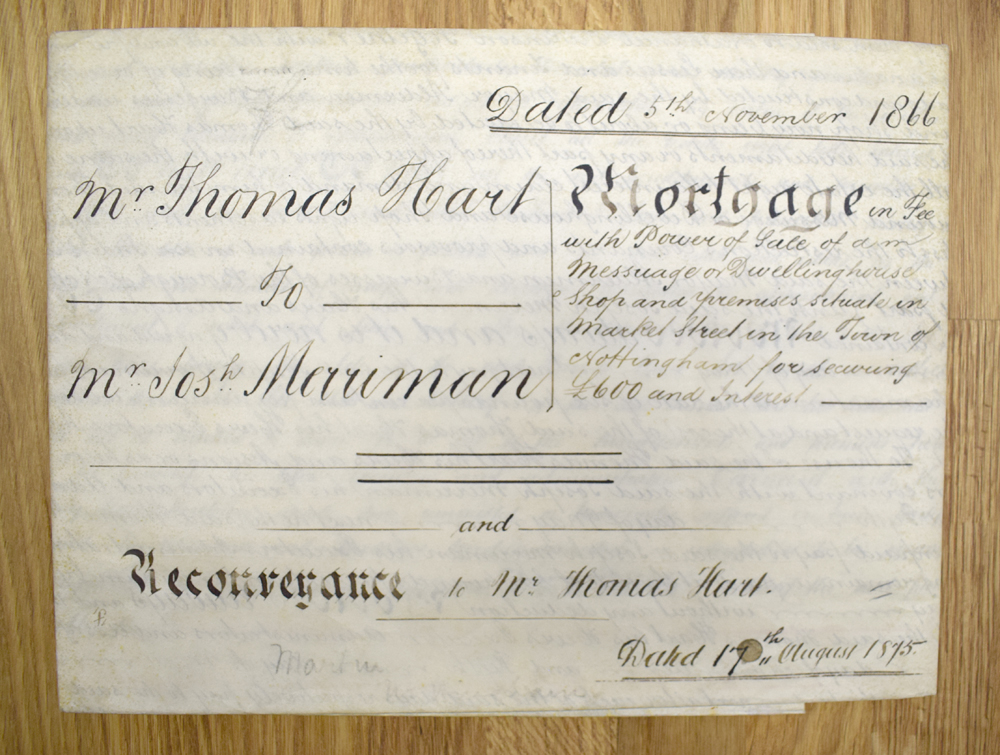 Dated 5th November 1866
Mr Thomas Hart
To
Mr Josh Merriman
Mortgage in Fee
with Power of Sale of a
Messuage or Dwellinghouse
Shop and premises situate in
Market Street in the Town of
Nottingham for securing
£600 and Interest
and
Reconveyance to Mr Thomas Hart.
Martin
Dated 17th August 1875